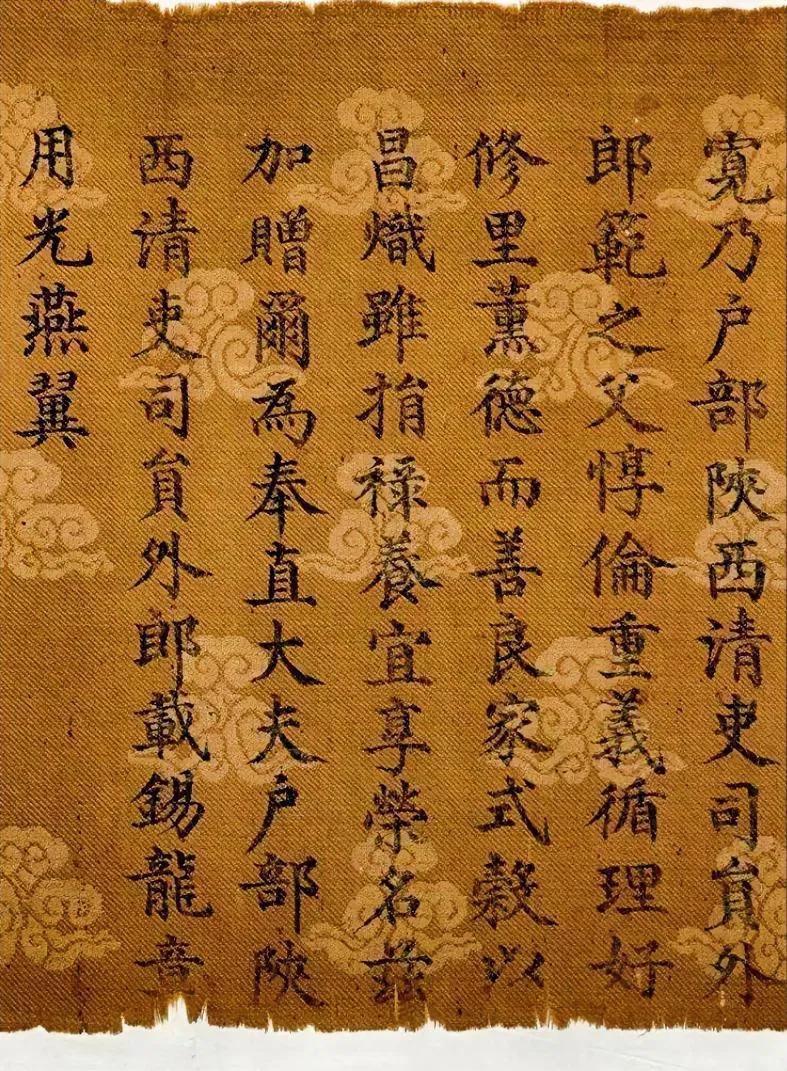 寬乃户部陝西清吏司員外
郎範之父惇倫重義循理好
修里薰德而善良家式穀以
昌熾雖捐禄養宜享榮名茲
加贈爾為奉直大夫户部陝
西清吏司員外郎載錫龍章
用光燕翼